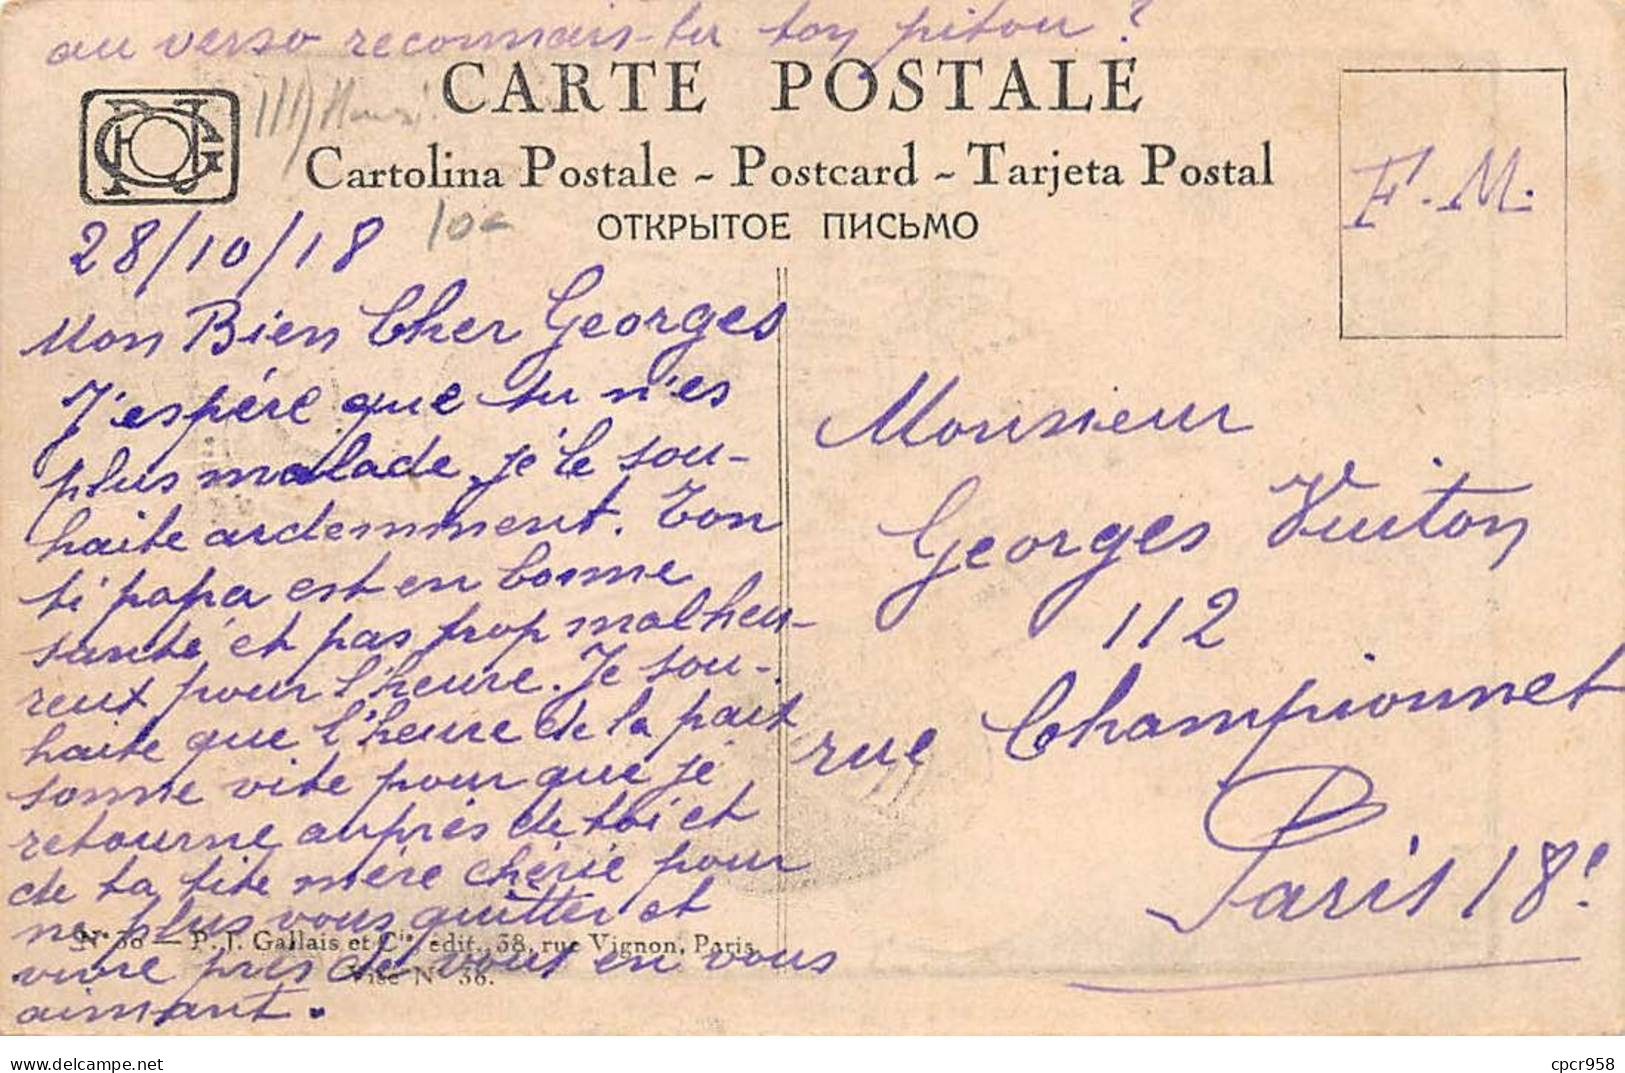 au verso reconnais-tu ton pitou ?
CARTE POSTALE
Cartolina Postale ~ Postcard ~ Tarjeta Postal
ОТКРЫТОЕ ПИСЬМО
F. M.
10c
28/10/18
Mon Bien Cher Georges
J'espère que tu n'es
plus malade, je le sou-
haite ardemment. Ton
ti papa est en bonne
santé et pas trop malheu-
reux pour l'heure. Je sou-
haite que l'heure de la paix
sonne vite pour que je
retourne auprès de toi et
de ta tite mère chérie pour
ne plus vous quitter et
vivre près de vous en vous
aimant.
Monsieur
Georges Vuiton
112
rue Championnet
Paris 18e
N° 36 — P. J. Gallais et Cie, édit., 38, rue Vignon, Paris.
Visé N° 36.
cpcr958